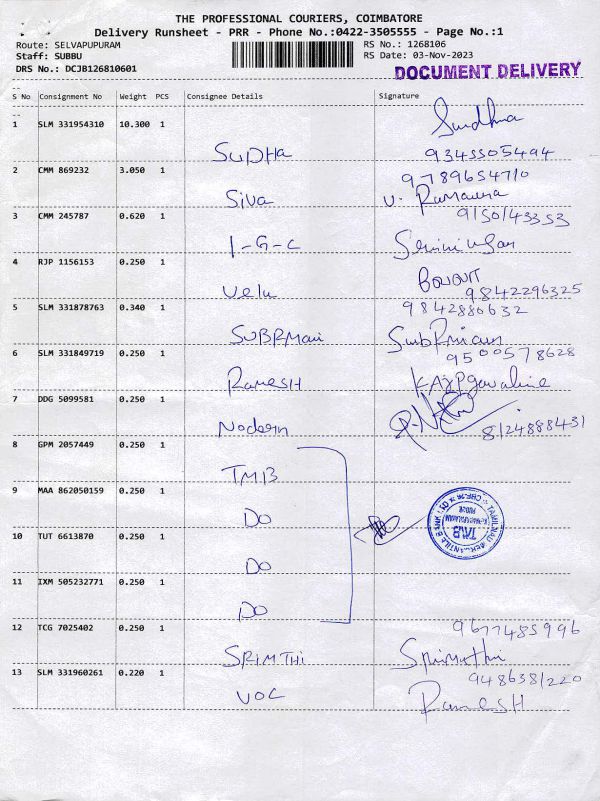 THE PROFESSIONAL COURIERS, COIMBATORE
Delivery Runsheet - PRR - Phone No.:0422-3505555 - Page No.:1
Route: SELVAPUPURAM RS No.: 1268106
Staff: SUBBU RS Date: 03-Nov-2023
DRS No.: DCJB126810601
DOCUMENT DELIVERY
S No Consignment No Weight PCS Consignee Details Signature
1 SLM 331954310 10.300 1
SUDHA 9345505494
2 CMM 869232 3.050 1 9789654710
Siva
3 CMM 245787 0.620 1 9150143353
I-G-C
4 RJP 1156153 0.250 1
Velu 9842296325
5 SLM 331878763 0.340 1 9842880632
SUBRMani
6 SLM 331849719 0.250 1 9500578628
RamESH
7 DDG 5099581 0.250 1
Nodern 8124888431
8 GPM 2057449 0.250 1
TMB
9 MAA 862050159 0.250 1
DO
10 TUT 6613870 0.250 1
DO
11 IXM 505232771 0.250 1
DO
12 TCG 7025402 0.250 1 9677485996
SRIMTHI
13 SLM 331960261 0.220 1 9486381220
VOC RamESH